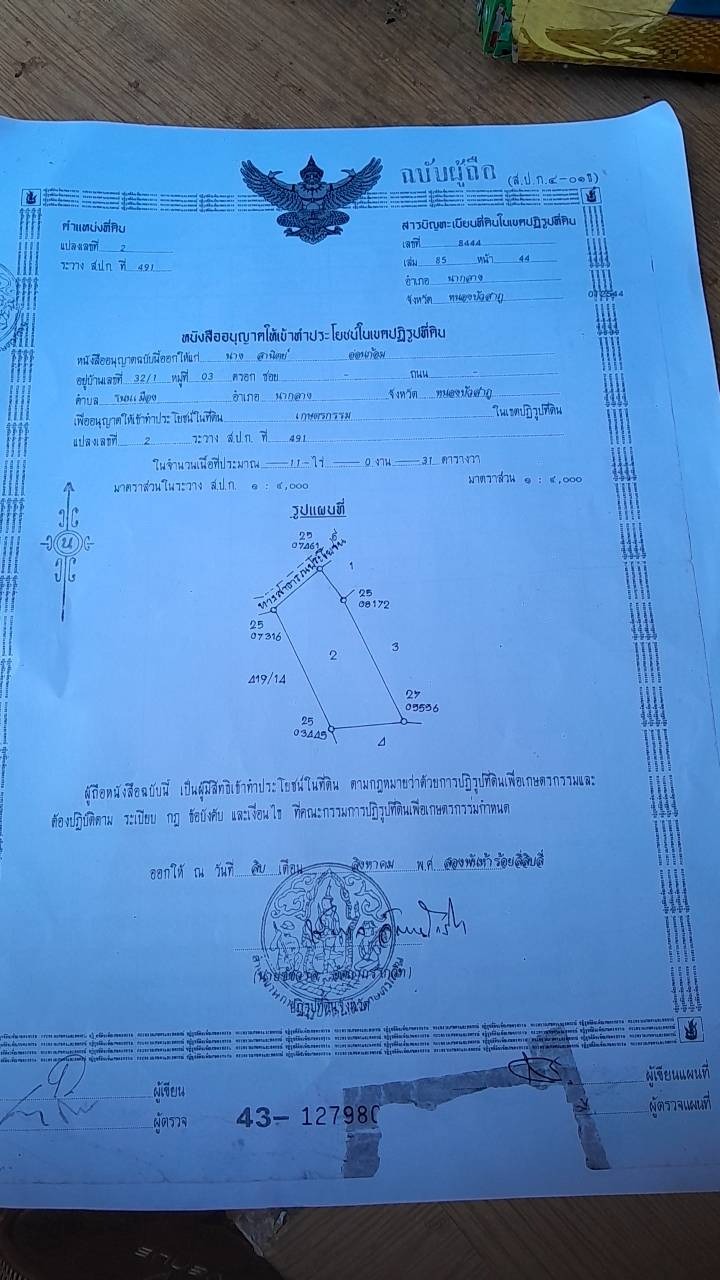 ฉบับผู้ถือ (ส.ป.ก.๔-๐๑ข)
ตำแหน่งที่ดิน
แปลงเลขที่ 2
ระวาง ส.ป.ก. ที่ 491
สารบัญทะเบียนที่ดินในเขตปฏิรูปที่ดิน
เลขที่ 8444
เล่ม 85 หน้า 44
อำเภอ นากลาง
จังหวัด หนองบัวลำภู
หนังสืออนุญาตให้เข้าทำประโยชน์ในเขตปฏิรูปที่ดิน
หนังสืออนุญาตฉบับนี้ออกให้แก่ นาง
อยู่บ้านเลขที่ 32/1 หมู่ที่ 03 ตรอก ซอย - ถนน -
ตำบล อำเภอ นากลาง จังหวัด หนองบัวลำภู
เพื่ออนุญาตให้เข้าทำประโยชน์ในที่ดิน เกษตรกรรม ในเขตปฏิรูปที่ดิน
แปลงเลขที่ 2 ระวาง ส.ป.ก. ที่ 491
ในจำนวนเนื้อที่ประมาณ 11 ไร่ 0 งาน 31 ตารางวา
มาตราส่วนในระวาง ส.ป.ก. ๑ : ๔,๐๐๐ มาตราส่วน ๑ : ๔,๐๐๐
รูปแผนที่
น
25
07461
ทางสาธารณประโยชน์
1
25
08172
25
07316
2
3
419/14
27
25
03445
4
ผู้ถือหนังสือฉบับนี้ เป็นผู้มีสิทธิเข้าทำประโยชน์ในที่ดิน ตามกฎหมายว่าด้วยการปฏิรูปที่ดินเพื่อเกษตรกรรมและ
ต้องปฏิบัติตาม ระเบียบ กฎ ข้อบังคับ และเงื่อนไข ที่คณะกรรมการปฏิรูปที่ดินเพื่อเกษตรกรรมกำหนด
ออกให้ ณ วันที่ สิบ เดือน สิงหาคม พ.ศ. สองพันห้าร้อยสี่สิบสี่
ปฏิรูปที่ดินจังหวัด
ผู้เขียน
ผู้ตรวจ
43- 127980
ผู้เขียนแผนที่
ผู้ตรวจแผนที่